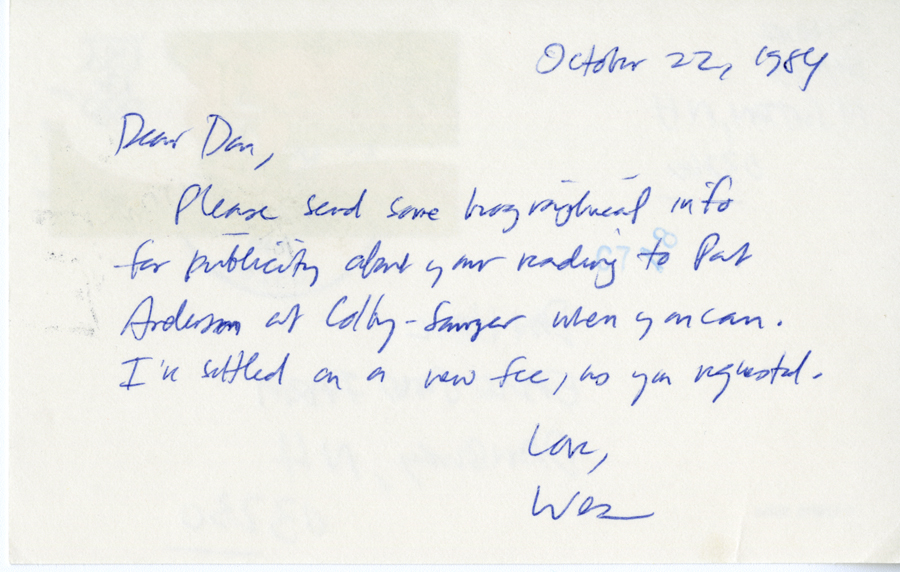 October 22, 1984
Dear Dan,
Please send some biographical info
for publicity about your reading to Pat
Anderson at Colby-Sawyer when you can.
I've settled on a new fee, as you requested.
Love,
Wes